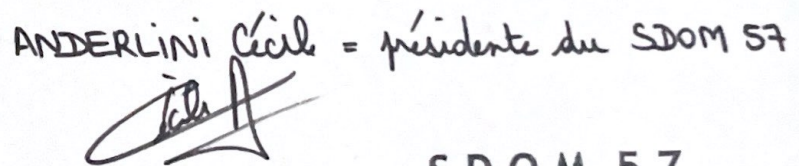 ANDERLINI Cécile = présidente du SDOM 57
Cécile A
SDOM 57